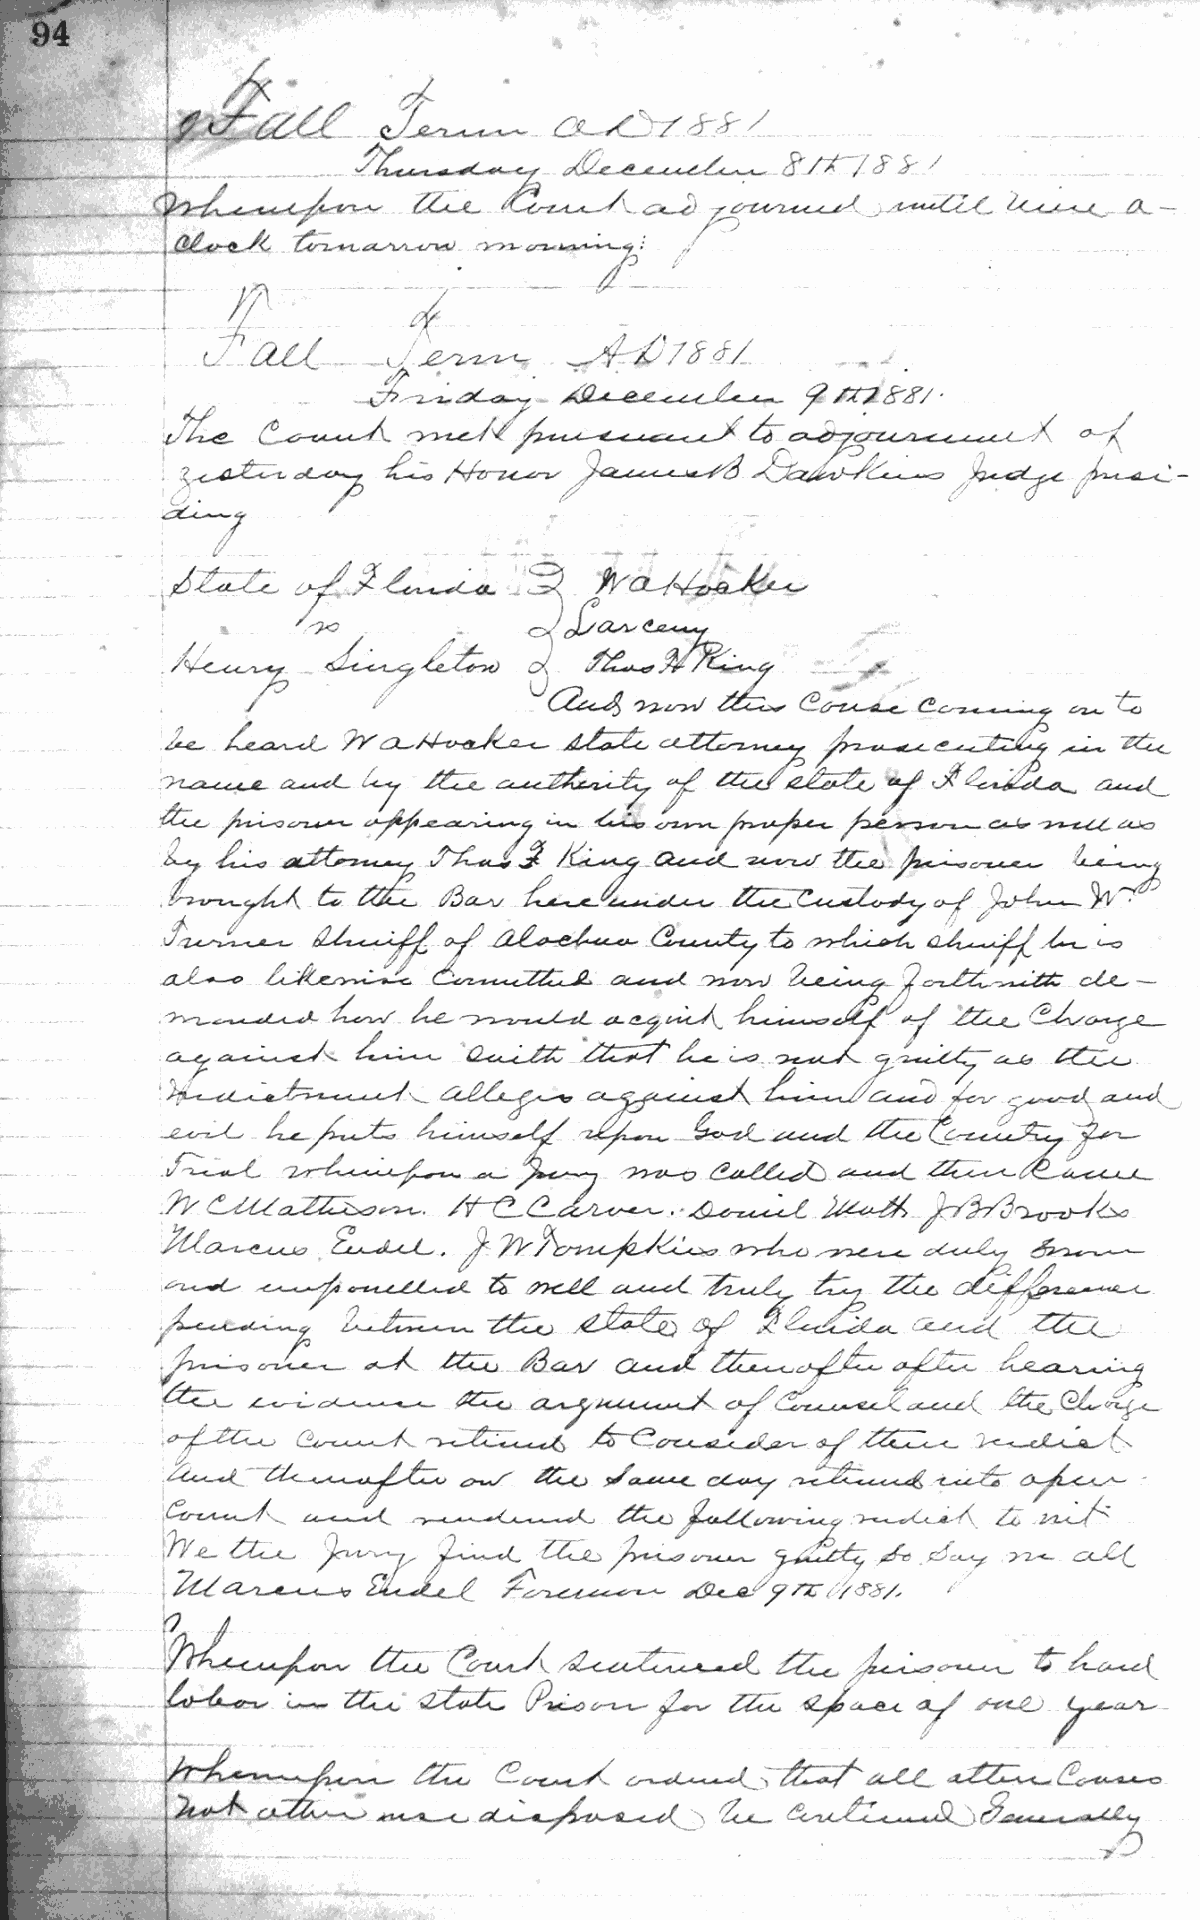 94
Fall Term A D 1881
Thursday December 8th 1881
Whereupon the Court adjourned until nine o-
clock tomarrow morning.
Fall Term A D 1881
Friday December 9th 1881.
The Court met pursuant to adjournment of
yesterday his Honor James B Dawkins Judge presi-
ding
State of Florida W A Hocker
vs Larceny
Henry Singleton Thos F King
And now this Cause coming on to
be heard W A Hocker state attorney prosecuting in the
name and by the authority of the state of Florida and
the prisoner appearing in his own proper person as well as
by his attorney Thos F King and now the prisoner being
brought to the Bar here under the Custody of John W.
Turner Sheriff of Alachua County to which sheriff he is
also likewise Comitted and now being forthwith de-
manded how he would acquit himself of the Charge
against him saith that he is not guilty as the
Indictment alleges against him and for good and
evil he puts himself upon God and the Country for
Trial whereupon a Jury was called and then Came
W C Matheson. H C Carver. Daniel Mott J B Brooks
Marcus Endel. J W Tompkins who were duly sworn
and empanelled to well and truly try the difference
pending between the state of Florida and the
prisoner at the Bar and thereafter after hearing
the evidence the argument of Counsel and the Charge
of the Court retired to Consider of their verdict
And thereafter on the same day returned into open
Court and rendered the following verdict to wit
We the Jury find the prisoner guilty So Say we all
Marcus Endel Foreman Dec 9th 1881.
Whereupon the Court sentenced the prisoner to hard
labor in the state Prison for the space of one year
Whereupon the Court ordered that all other Causes
not other wise disposed be Continued Generally